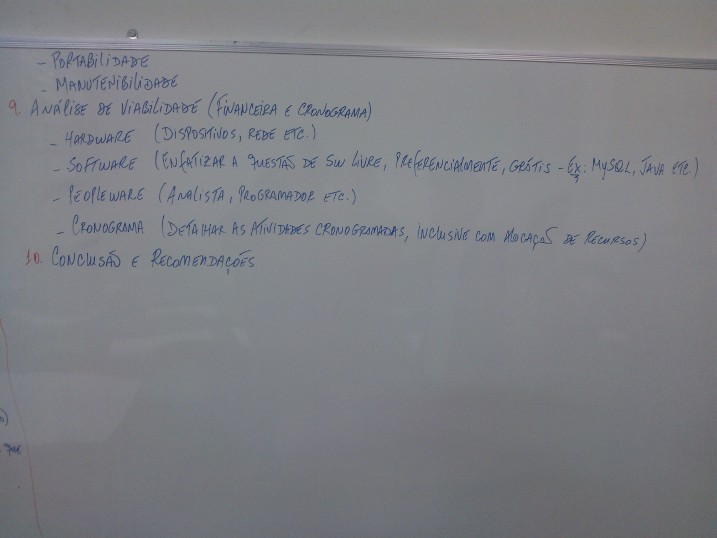 - PORTABILIDADE
- MANUTENIBILIDADE
9. ANÁLISE DE VIABILIDADE (FINANCEIRA E CRONOGRAMA)
- HARDWARE (DISPOSITIVOS, REDE ETC.)
- SOFTWARE (ENFATIZAR A QUESTÃO DE SW LIVRE, PREFERENCIALMENTE, GRÁTIS - EX: MySQL, JAVA ETC.)
- PEOPLEWARE (ANALISTA, PROGRAMADOR ETC.)
- CRONOGRAMA (DETALHAR AS ATIVIDADES CRONOGRAMADAS, INCLUSIVE COM ALOCAÇÃO DE RECURSOS)
10. CONCLUSÃO E RECOMENDAÇÕES